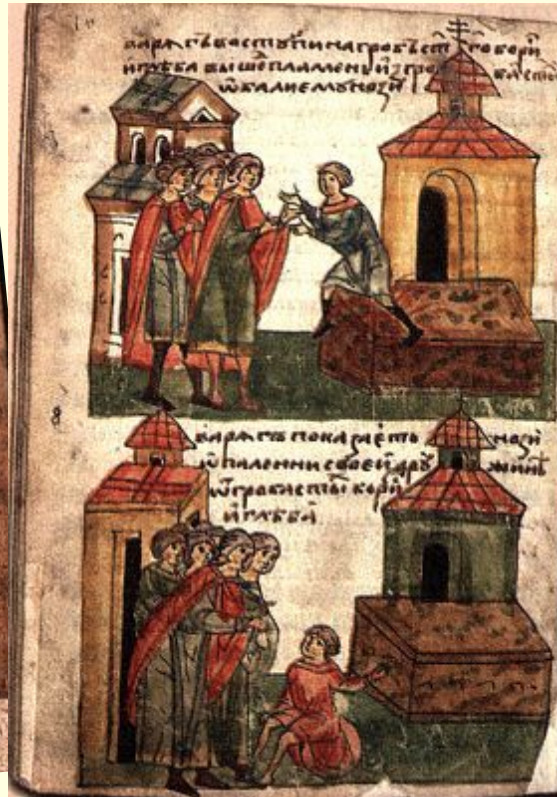 варѧгъ вѡстꙋпи на гробъ ст҃го бори
и глѣба вышеⷣ пламень изгро ба ст҃ы
ѡбали емꙋ нозѣ
варѧгъ показаеть нозѣ
ѡпаленни своеи дрꙋ жинѣ
ѿ гроба ст҃ы бори
и глѣба